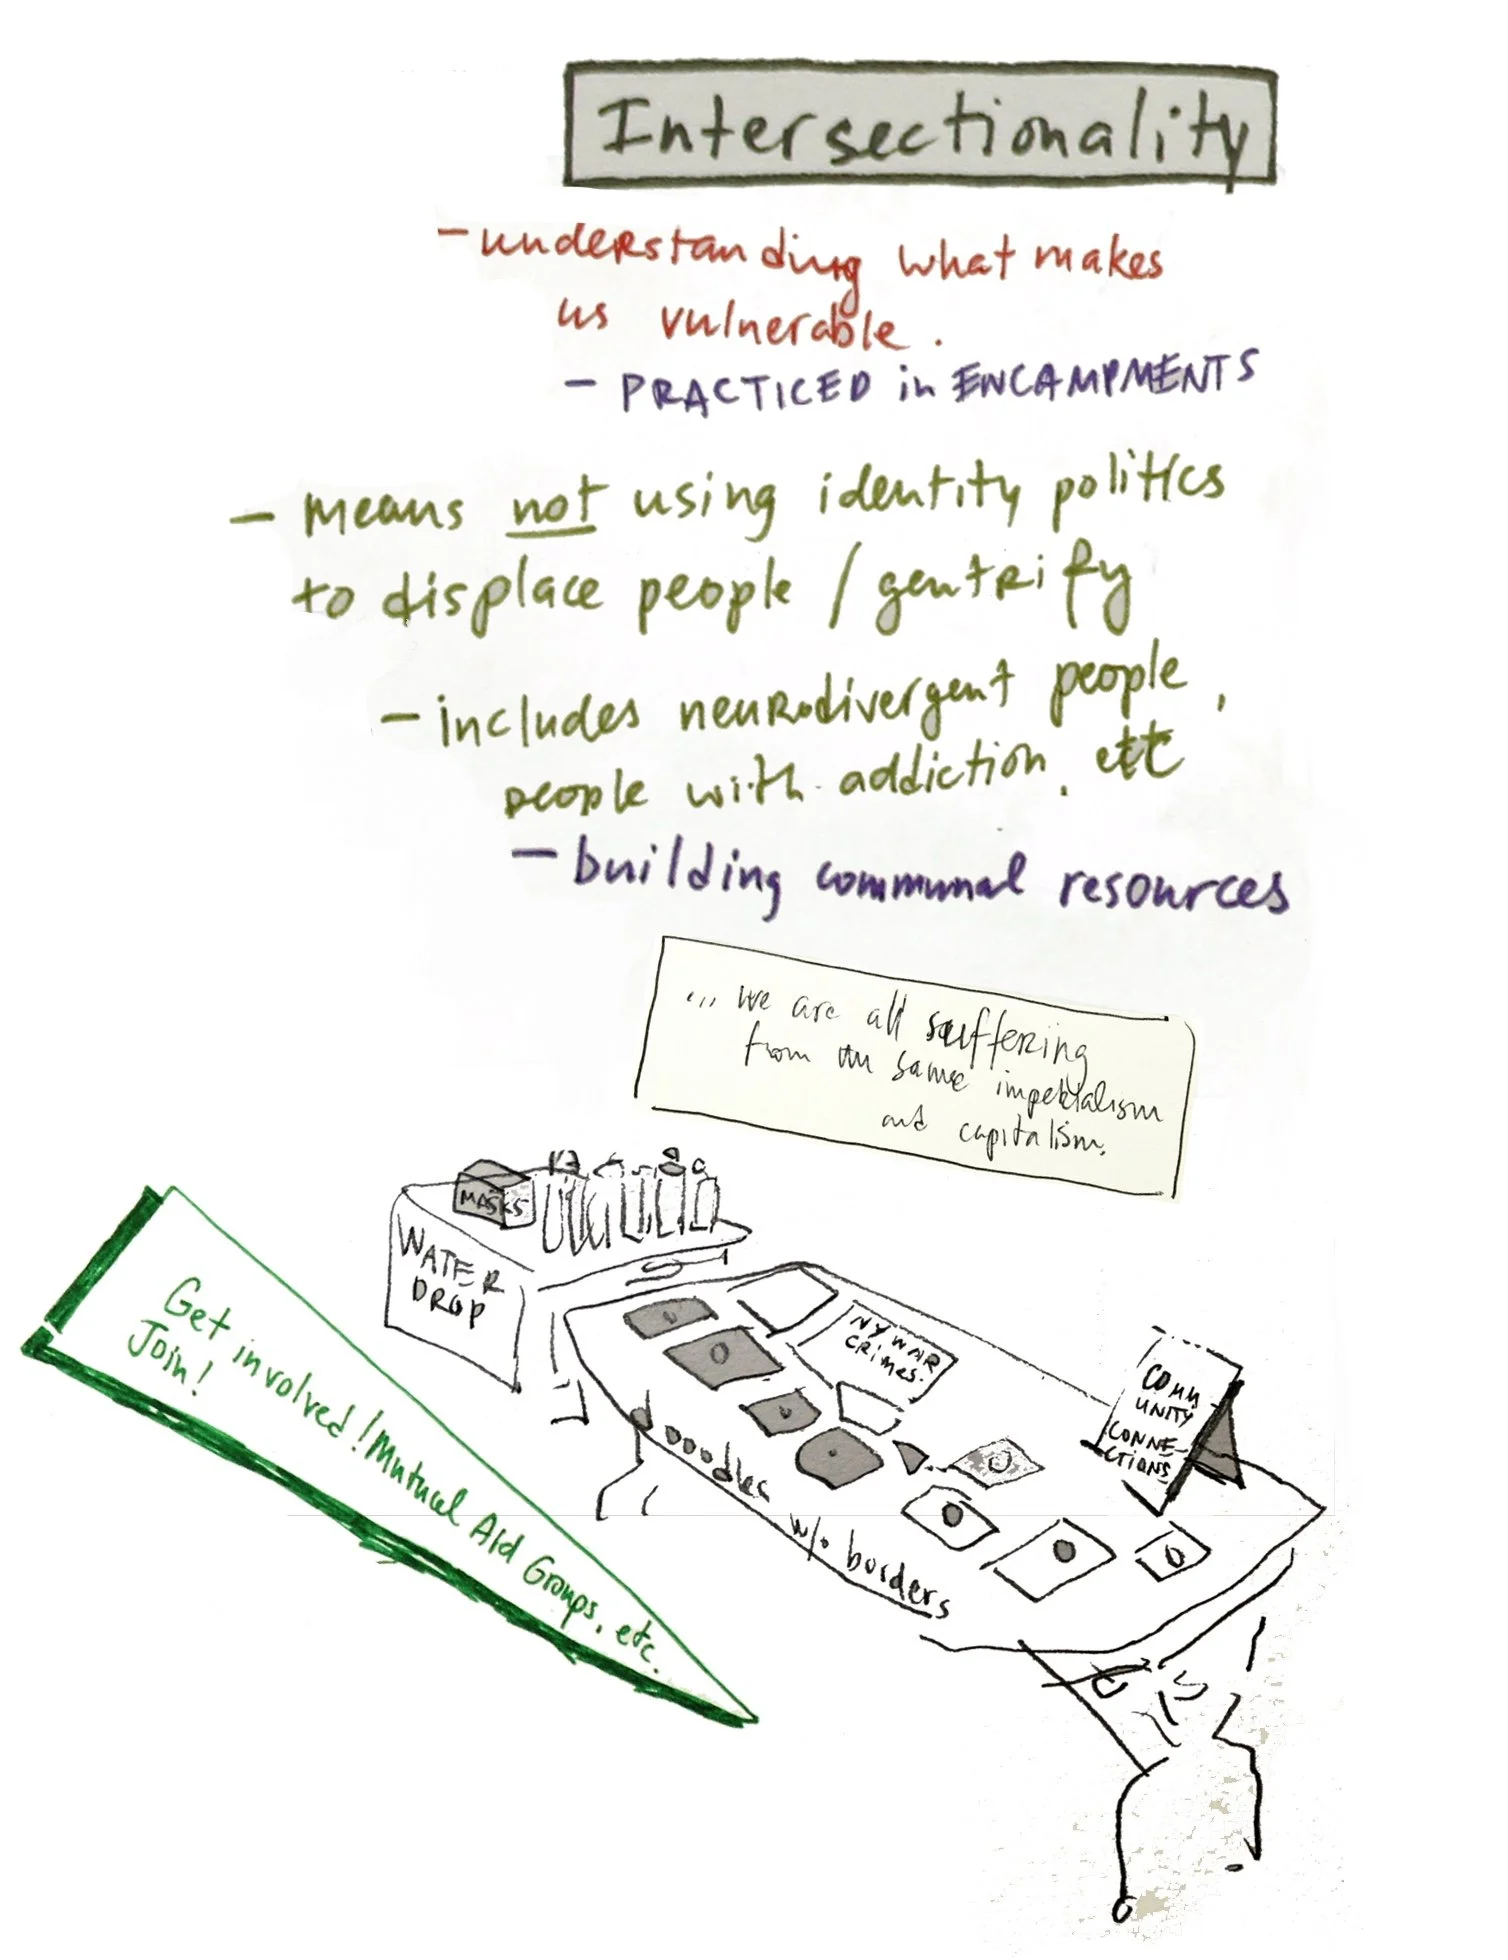 Intersectionality
- understanding what makes
us vulnerable.
- PRACTICED in ENCAMPMENTS
- means not using identity politics
to displace people / gentrify
- includes neurodivergent people,
people with addiction, etc
- building communal resources
... we are all suffering
from the same imperialism
and capitalism.
MASKS
WATER
DROP
Get involved! Mutual Aid Groups, etc.
Join!
NY WAR
CRIMES.
COMM
UNITY
CONNE-
CTIONS
doodles w/o borders